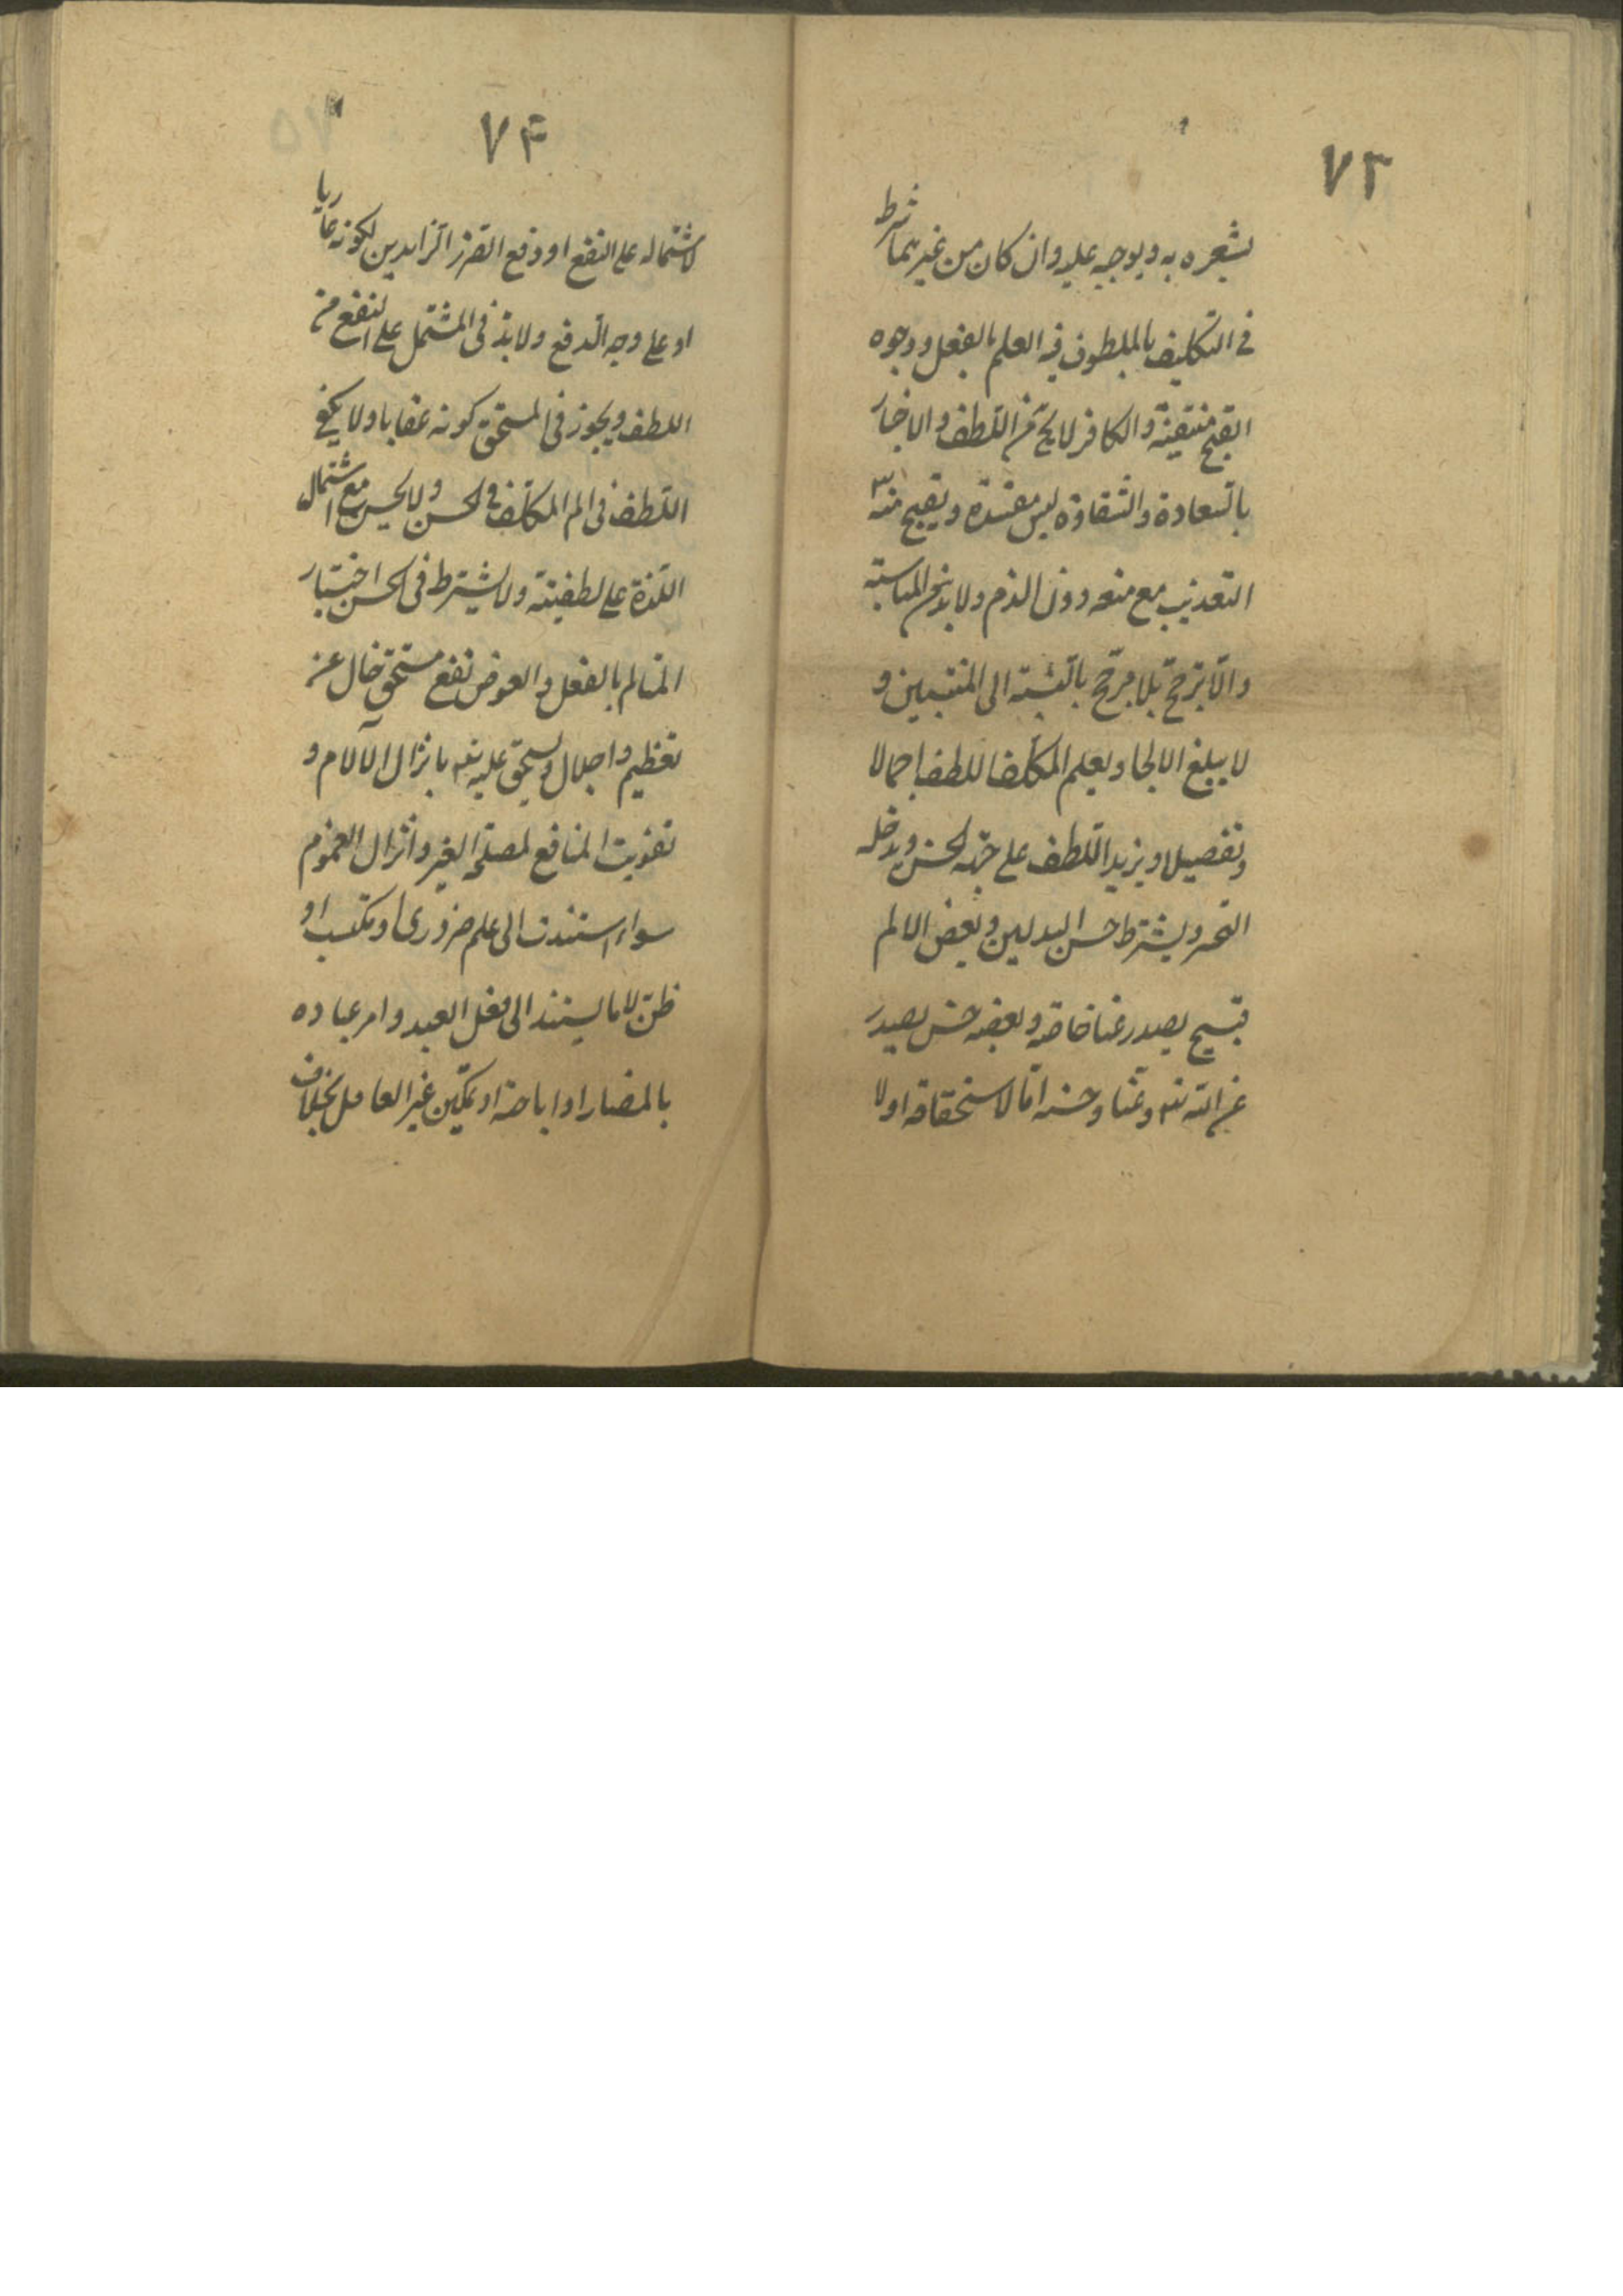 ٧٣
يشعره به ويوجبه عليه وان كان من غيرهما شرط
فى التكليف بالملطوف فيه العلم بالفعل ووجوه
القبح منتفية والكافر لا يخ من اللطف والاخبار
بالسعادة والشقاوة ليس مفسدة ويقبح منه
التعذيب مع منعه دون الذم ولا بد من المناسبة
والا ترجح بلا مرجح بالنسبة الى المنتسبين و
لا يبلغ الالجا ويعلم المكلف اللطف اجمالا
وتفصيلا ويزيد اللطف على جهة الحسن ويدخله
التخير ويشترط حسن البدلين وبعض الالم
قبيح يصدر عنا خاصة وبعضه حسن يصدر
من الله تعه وعنا وحسنه اما لاستحقاقه او لا
٧۴
لاشتماله على النفع او دفع الضرر الزايدين لكونه عاريا
او على وجه الدفع ولا بد فى المشتمل على النفع من
اللطف ويجوز فى المستحق كونه عقابا ولا يكفى
اللطف فى الم المكلف فى الحسن ولا يحسن مع اشتمال
اللذة على لطفيته ولا يشترط فى الحسن اختيار
المتالم بالفعل والعوض نفع مستحق خال عن
تعظيم واجلال ويستحق عليه تعه بانزال الآلام و
تفويت المنافع لمصلحة الغير وانزال الغموم
سواء استندت الى علم ضرورى او مكتسب او
ظن لا ما يستند الى فعل العبد وامر عباده
بالمضار او اباحته او تمكين غير العاقل بخلاف